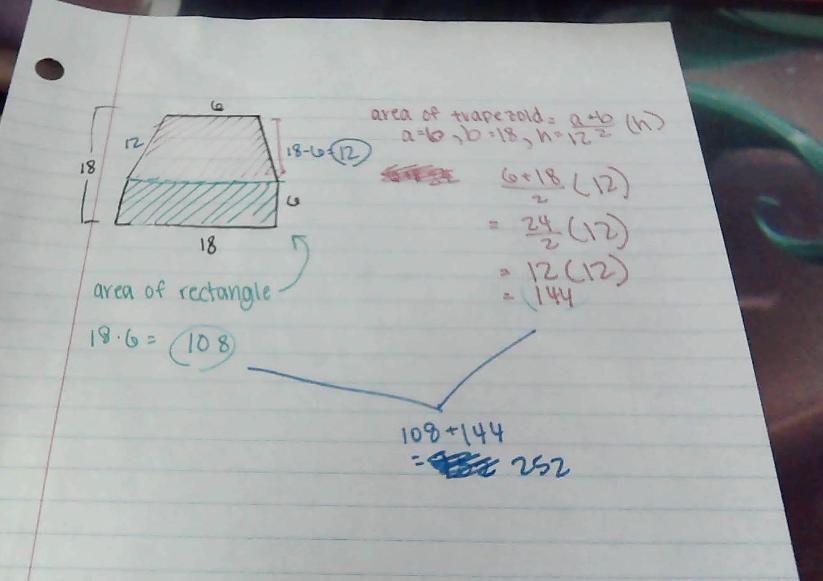 6
12
18
18-6=12
6
18
area of rectangle
18·6= 108
area of trapezoid= a+b/2 (h)
a=6, b=18, h=12
6+18/2 (12)
= 24/2 (12)
= 12(12)
= 144
108+144
= 252